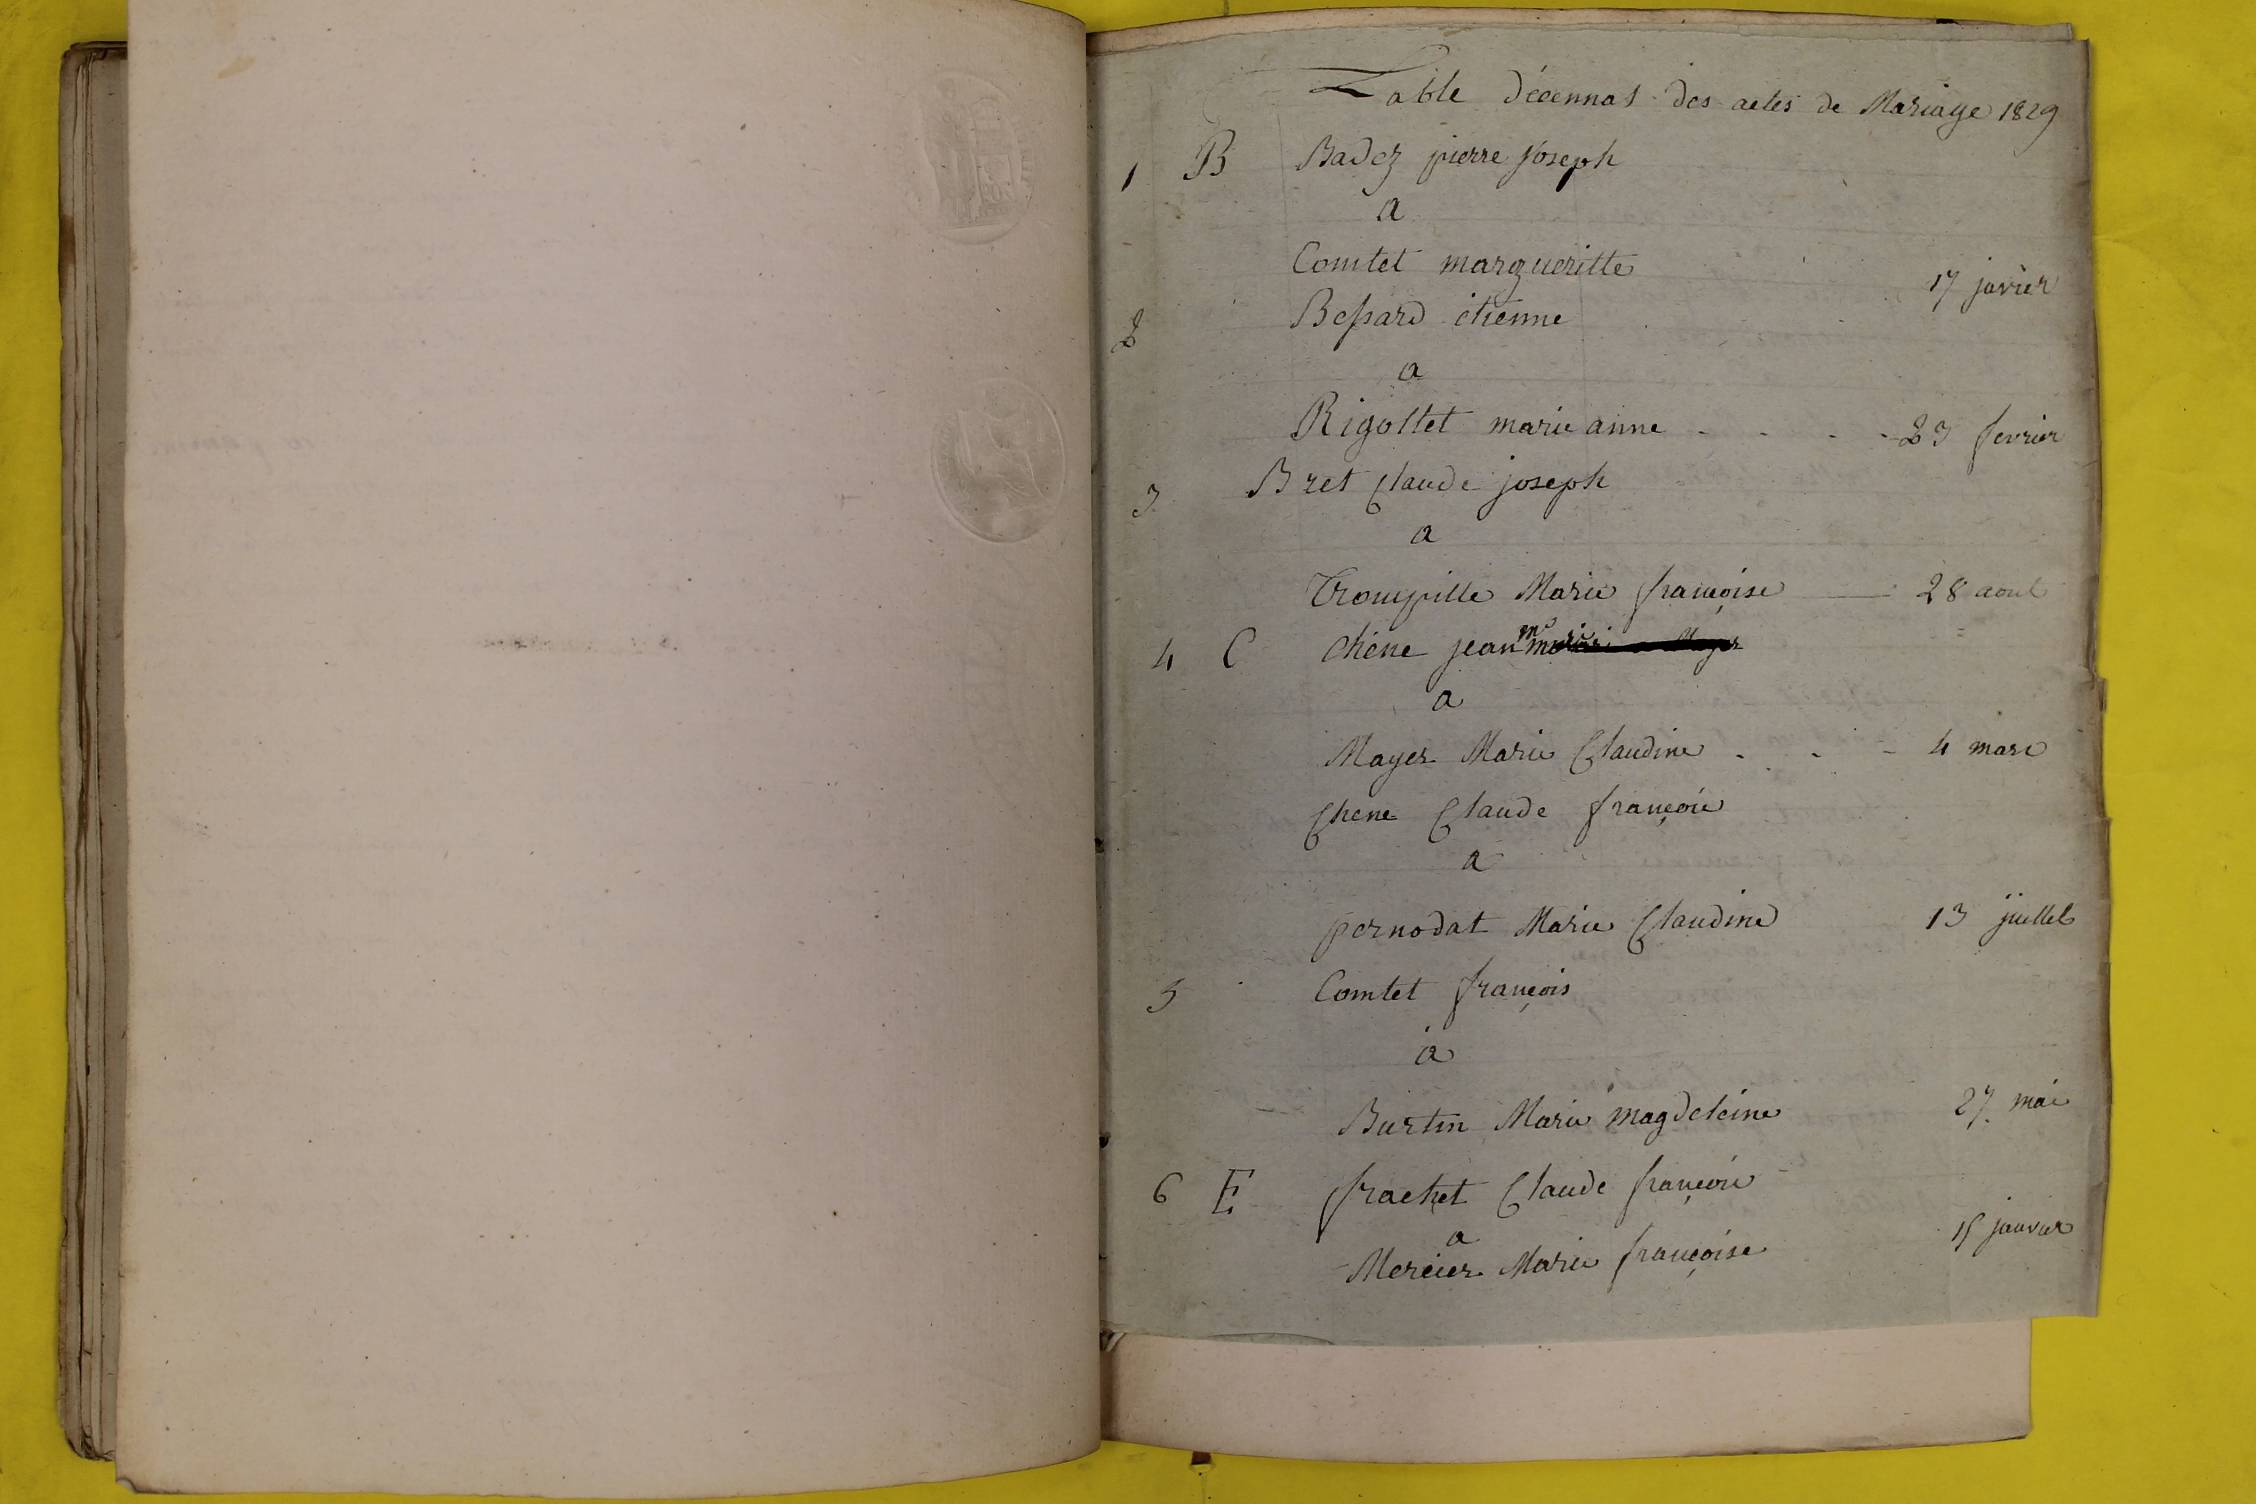 Table décennal des actes de Mariage 1829
1 B Badez pierre joseph
a
Comtet margueritte 17 javier
2 Bessard etienne
a
Rigottet marie anne - - - - 23 fevrier
3 Bret Claude joseph
a
Trompille Marie françoise — 28 aout
4 C chêne jean mie
a
Mayer Marie Claudine - - - 4 mars
Chene Claude françois
a
pernodat Marie Claudine 13 juillet
5 Comtet françois
a
Burtin Marie magdeleine 27 mai
6 F frachet Claude françois
a
Mercier Marie françoise 15 janvier